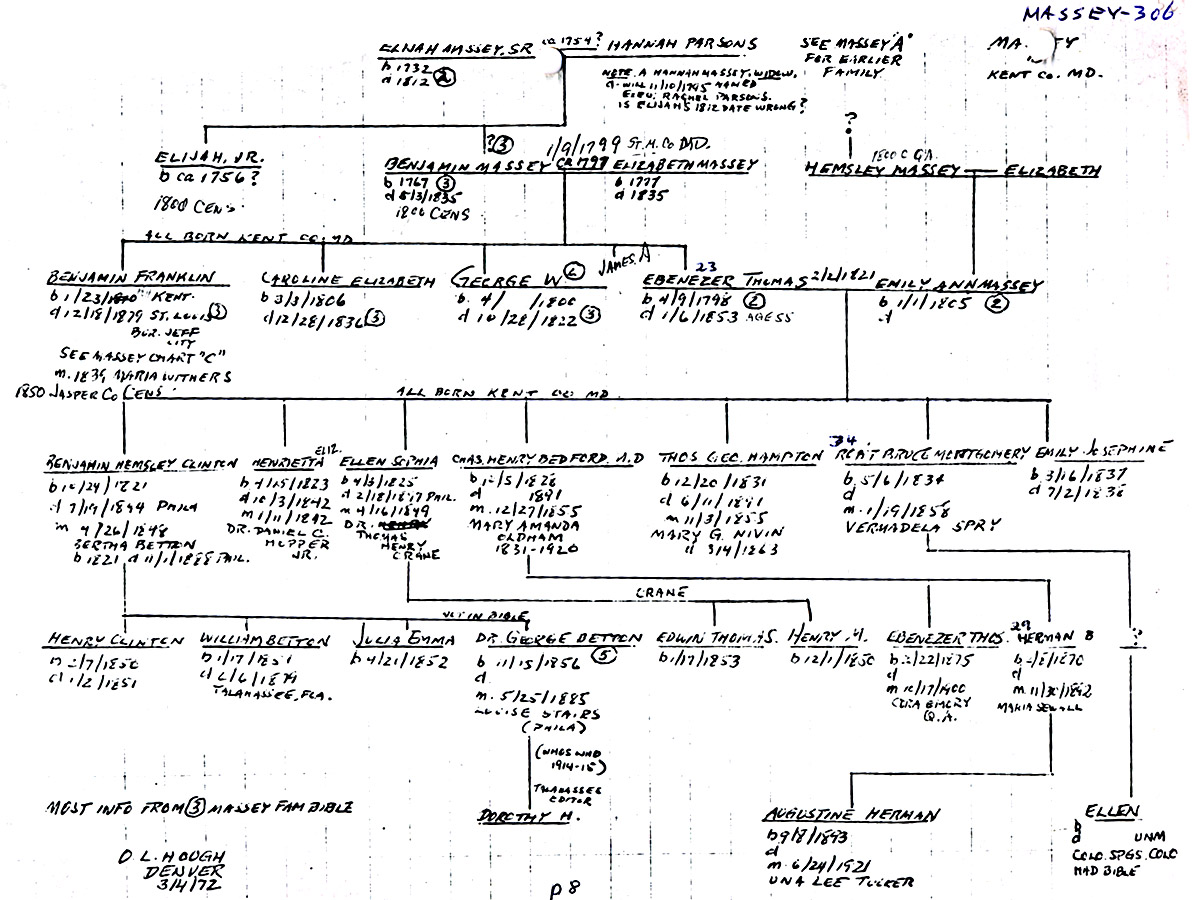 MASSEY-306
ELIJAH MASSEY, SR ca 1754? HANNAH PARSONS
b 1732
d 1812 (2)
NOTE. A HANNAH MASSEY, WIDOW,
d. WILL 11/10/1745 NAMED
EXEC. RACHEL PARSONS.
IS ELIJAH'S 1812 DATE WRONG?
SEE MASSEY "A"
FOR EARLIER
FAMILY
MA Y
KENT CO. MD.
ELIJAH, JR.
b ca 1756?
1800 CENS.
? (3)
1/9/1799 ST. M. CO MD.
BENJAMIN MASSEY CA 1797 ELIZABETH MASSEY
b 1767 (3)
d 5/3/1835
1800 CENS
b 1777
d 1835
?
1800 C
HEMSLEY MASSEY — ELIZABETH
ALL BORN KENT CO MD
BENJAMIN FRANKLIN
b 1/23/ KENT.
d 12/18/1879 ST. LOUIS (3)
BUR. JEFF
CITY
SEE MASSEY CHART "C"
m. 1839 MARIA WITHERS
1850 JASPER CO CENS
CAROLINE ELIZABETH
b 3/3/1806
d 12/28/1836 (3)
GEORGE W. (2)
b. 4/ /1800
d 10/28/1822 (3)
JAMES A
23
EBENEZER THOMAS 2/2/1821 EMILY ANN MASSEY
b 4/9/1798 (2)
d 1/6/1853 AGE 55
b 1/1/1805 (2)
d
ALL BORN KENT CO MD
BENJAMIN HEMSLEY CLINTON
b 10/24/1821
d 7/19/1894 PHILA
m 4/26/1848
BERTHA BETTON
b 1821 d 11/1/1888 PHIL.
ELIZ.
HENRIETTA
b 4/15/1823
d 10/3/1842
m 1/11/1842
DR. DANIEL C.
HOPPER
JR.
ELLEN SOPHIA
b 4/3/1825
d 2/18/1897 PHIL.
m 4/16/1849
DR.
THOMAS
HENRY
CRANE
CHAS. HENRY BEDFORD. M.D
b 12/5/1828
d 1891
m. 12/27/1855
MARY AMANDA
OLDHAM
1831-1920
THOS GEO. HAMPTON
b 12/20/1831
d 6/11/1891
m 11/3/1855
MARY G. NIVIN
d 3/4/1863
34
ROB'T BRUCE MONTGOMERY
b. 5/6/1834
d
m. 1/19/1858
VERMADELA SPRY
EMILY JOSEPHINE
b 3/16/1837
d 7/2/1838
NOT IN BIBLE
CRANE
HENRY CLINTON
b 2/7/1850
d 1/2/1851
WILLIAM BETTON
b 1/17/1851
d 2/6/1879
TALAHASSEE, FLA.
JULIA EMMA
b 4/21/1852
DR. GEORGE BETTON
b 11/15/1856 (5)
d
m. 5/25/1885
LOUISE STAIRS
(PHILA)
(WHOS WHO
1914-15)
TALAHASSEE
EDITOR
DOROTHY H.
EDWIN THOMAS.
b 1/17/1853
HENRY M.
b 12/1/1850
EBENEZER THOS.
b 2/22/1875
d
m 10/17/1900
CORA EMORY
Q.A.
29
HERMAN B
b 2/8/1870
d
m 11/30/1892
MARIA SEWALL
?
AUGUSTINE HERMAN
b 9/8/1893
d
m. 6/24/1921
UNA LEE TUCKER
ELLEN
b
d UNM
COLO. SPGS. COLO
HAD BIBLE
MOST INFO FROM (3) MASSEY FAM BIBLE
D. L. HOUGH
DENVER
3/4/72
p 8